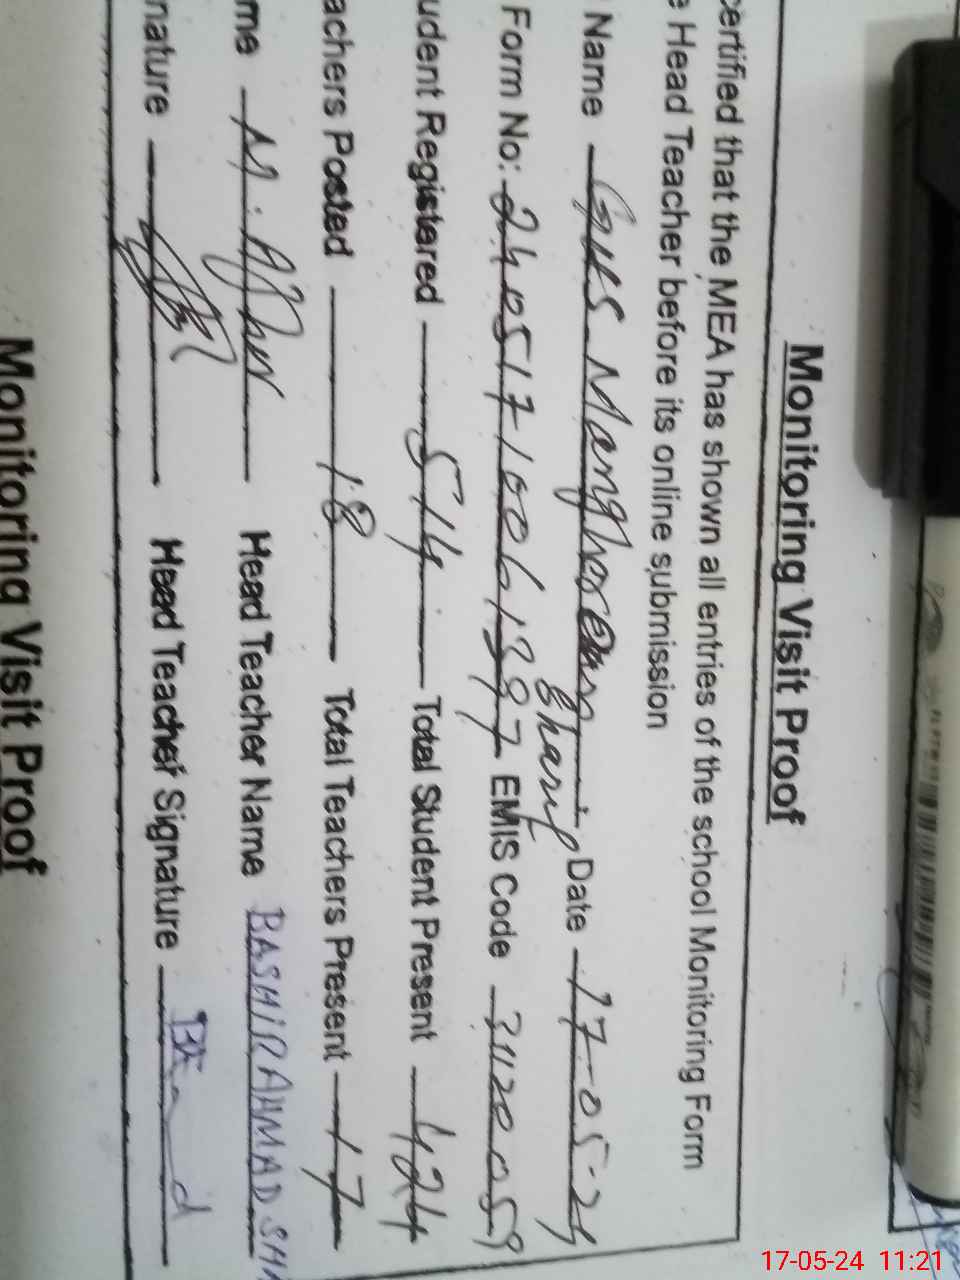 Monitoring Visit Proof
certified that the MEA has shown all entries of the school Monitoring Form
e Head Teacher before its online submission
Name GHS Manghosang Sharif Date 17-05-24
Form No: 24051710061397 EMIS Code 31120059
udent Registered 514 Total Student Present 424
achers Posted 18 Total Teachers Present 17
me Head Teacher Name BASHIR AHMAD SHA
nature Head Teacher Signature
Monitoring Visit Proof
17-05-24 11:21